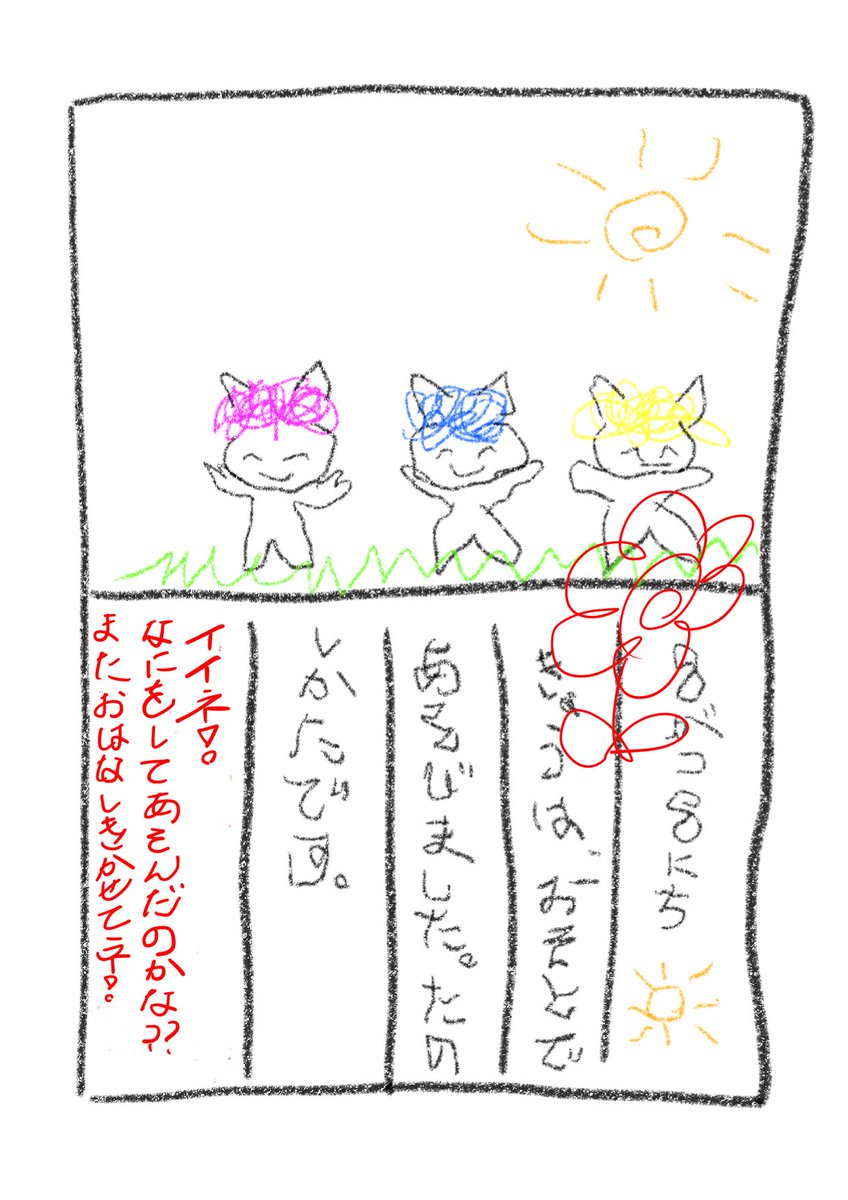 8がつ8にち
きょうは、おそとで
あそびました。たの
しかたです。
イイネ!
なにをしてあそんだのかな??
またおはなしきかせてネ!